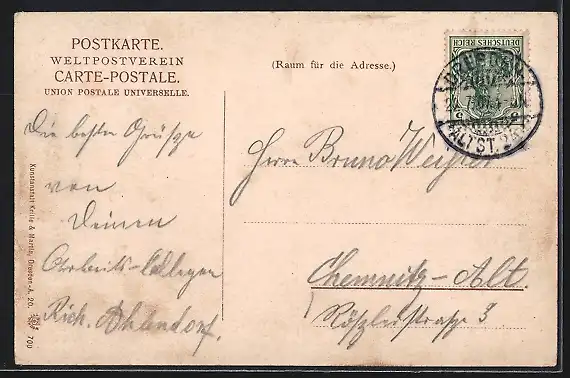 POSTKARTE.
WELTPOSTVEREIN
CARTE-POSTALE.
UNION POSTALE UNIVERSELLE.
(Raum für die Adresse.)
DEUTSCHES REICH
ALTST.
Die besten Grüße
von
Deinen
Arbeits-Collegen
Rich. Ahlendorf.
Herrn Bruno
Chemnitz-Alt.
straße 3
Kunstanstalt Krille & Martin, Dresden-A. 20.
700